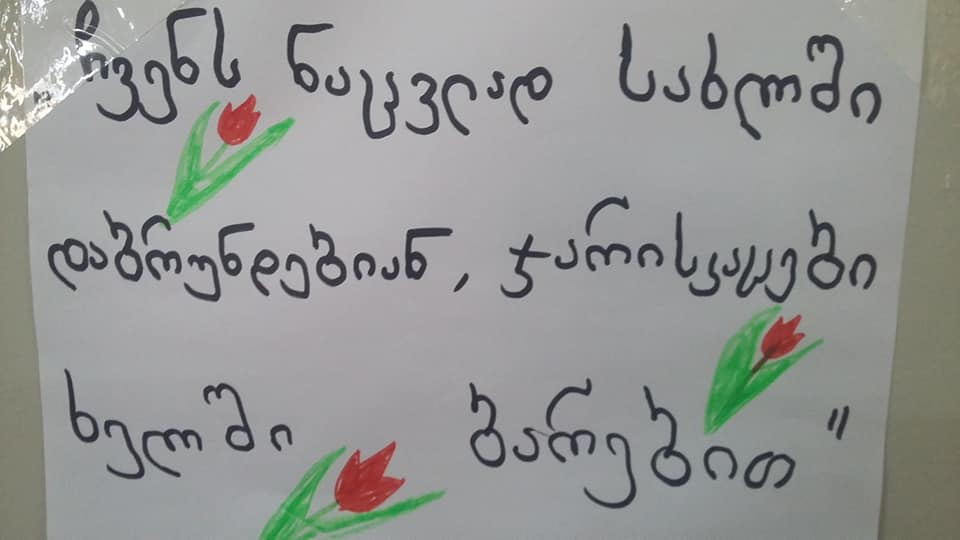 „ჩვენს ნაცვლად სახლში
დაბრუნდებიან, ჯარისკაცები
ხელში ბარებით"